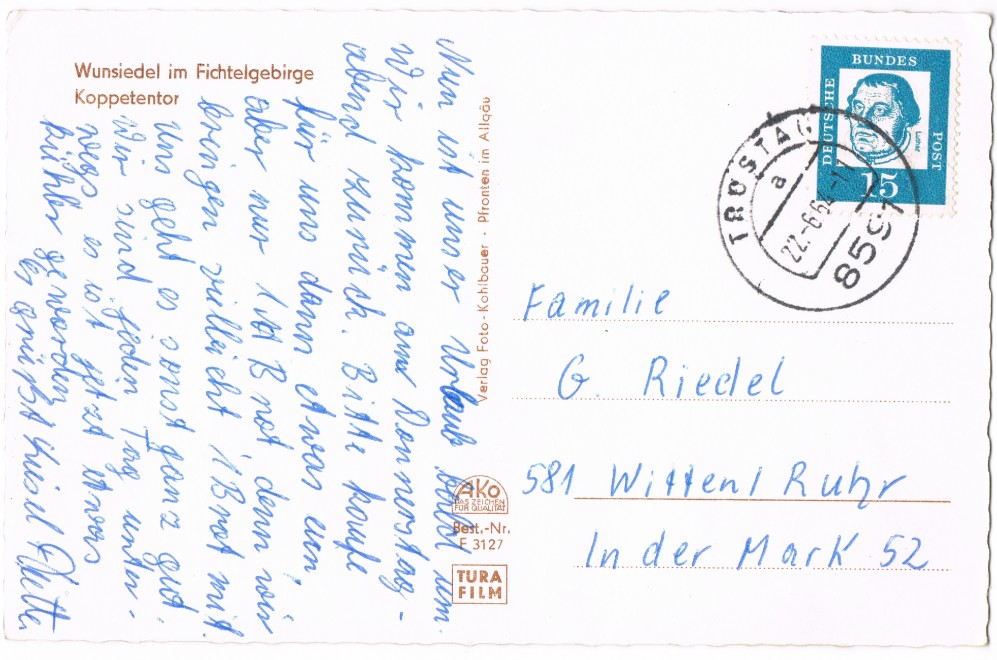 Wunsiedel im Fichtelgebirge
Koppetentor
Nun ist unser Urlaub bald um.
Wir kommen am Donnerstag-
abend zurück. Bitte kaufe
für uns dann etwas ein
aber nur 1 Brot denn wir
bringen vielleicht 1 Brot mit
Uns geht es sonst ganz gut.
Wir sind jeden Tag unter-
wegs es ist jetzt etwas
kühler geworden
Es grüßt
Verlag Foto-Kohlbauer · Pfronten im Allgäu
AKo
DAS ZEICHEN
FÜR QUALITÄT
Best.-Nr.
F 3127
TURA
FILM
DEUTSCHE
BUNDES
POST
Luther
15
TROSTA
a
22.-6.64
8591
Familie
G. Riedel
581 Witten/Ruhr
In der Mark 52